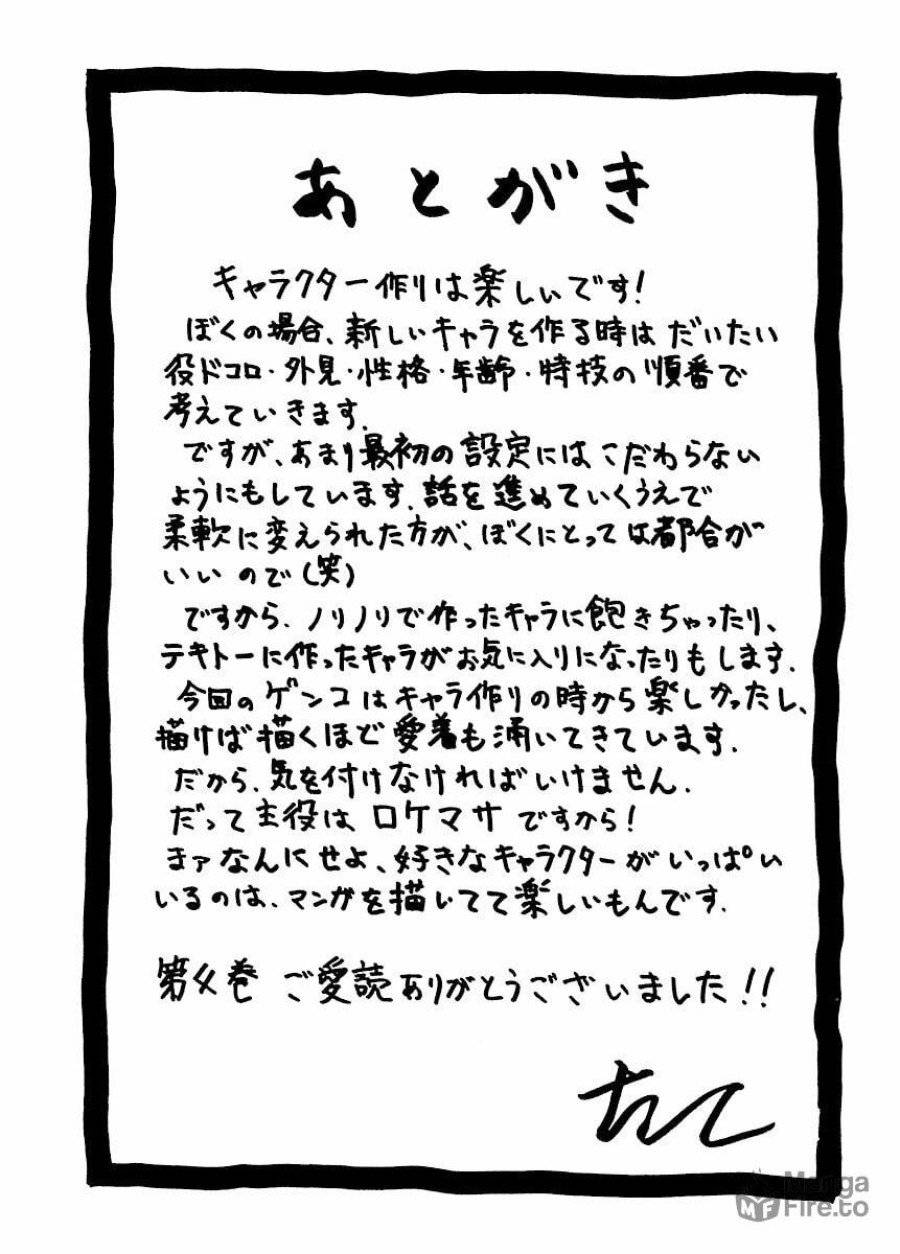 あとがき
キャラクター作りは楽しいです!
ぼくの場合、新しいキャラを作る時は だいたい
役ドコロ・外見・性格・年齢・特技の順番で
考えていきます.
ですが、あまり最初の設定にはこだわらない
ようにもしています.話を進めていくうえで
柔軟に変えられた方が、ぼくにとっては都合が
いいので(笑)
ですから、ノリノリで作ったキャラに飽きちゃったり、
テキトーに作ったキャラがお気に入りになったりもします.
今回のゲンコはキャラ作りの時から楽しかったし、
描けば描くほど愛着も涌いてきています.
だから、気を付けなければいけません.
だって主役は ロケマサ ですから!
まァなんにせよ、好きなキャラクターがいっぱい
いるのは、マンガを描いてて楽しいもんです.
第4巻 ご愛読ありがとうございました!!
Manga
Fire.to
MF